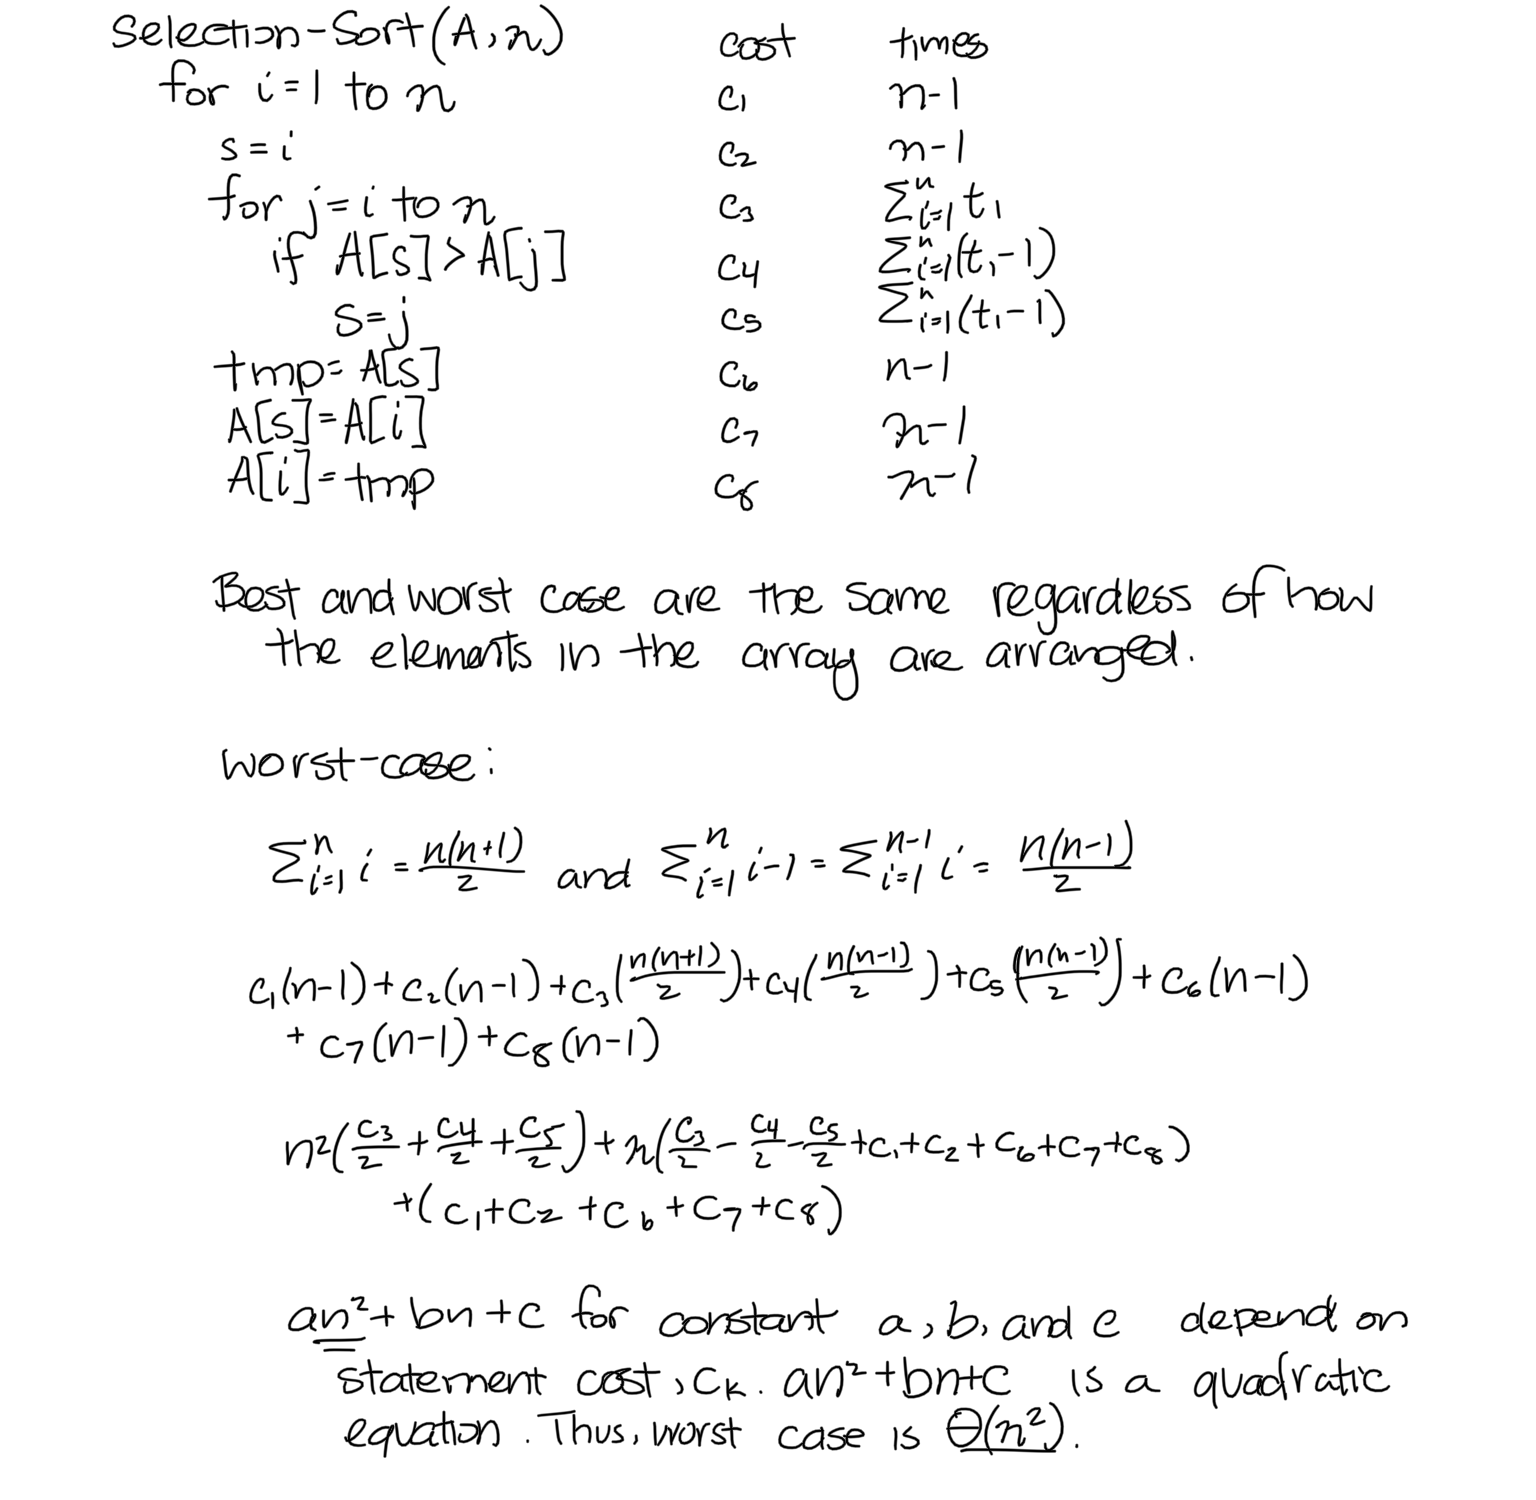 Selection-Sort(A,n) cost times
for i=1 to n c₁ n-1
s=i c₂ n-1
for j=i to n c₃ Σⁿᵢ₌₁ t₁
if A[s]>A[j] c₄ Σⁿᵢ₌₁(t₁-1)
s=j c₅ Σⁿᵢ₌₁(t₁-1)
tmp=A[s] c₆ n-1
A[s]=A[i] c₇ n-1
A[i]=tmp c₈ n-1
Best and worst case are the same regardless of how
the elements in the array are arranged.
worst-case:
Σⁿᵢ₌₁ i = n(n+1)/2 and Σⁿᵢ₌₁ i-1 = Σⁿ⁻¹ᵢ₌₁ i = n(n-1)/2
c₁(n-1)+c₂(n-1)+c₃(n(n+1)/2)+c₄(n(n-1)/2)+c₅(n(n-1)/2)+c₆(n-1)
+c₇(n-1)+c₈(n-1)
n²(c₃/2+c₄/2+c₅/2)+n(c₃/2-c₄/2-c₅/2+c₁+c₂+c₆+c₇+c₈)
+(c₁+c₂+c₆+c₇+c₈)
an²+bn+c for constant a, b, and c depend on
statement cost, cₖ. an²+bn+c is a quadratic
equation. Thus, worst case is Θ(n²).